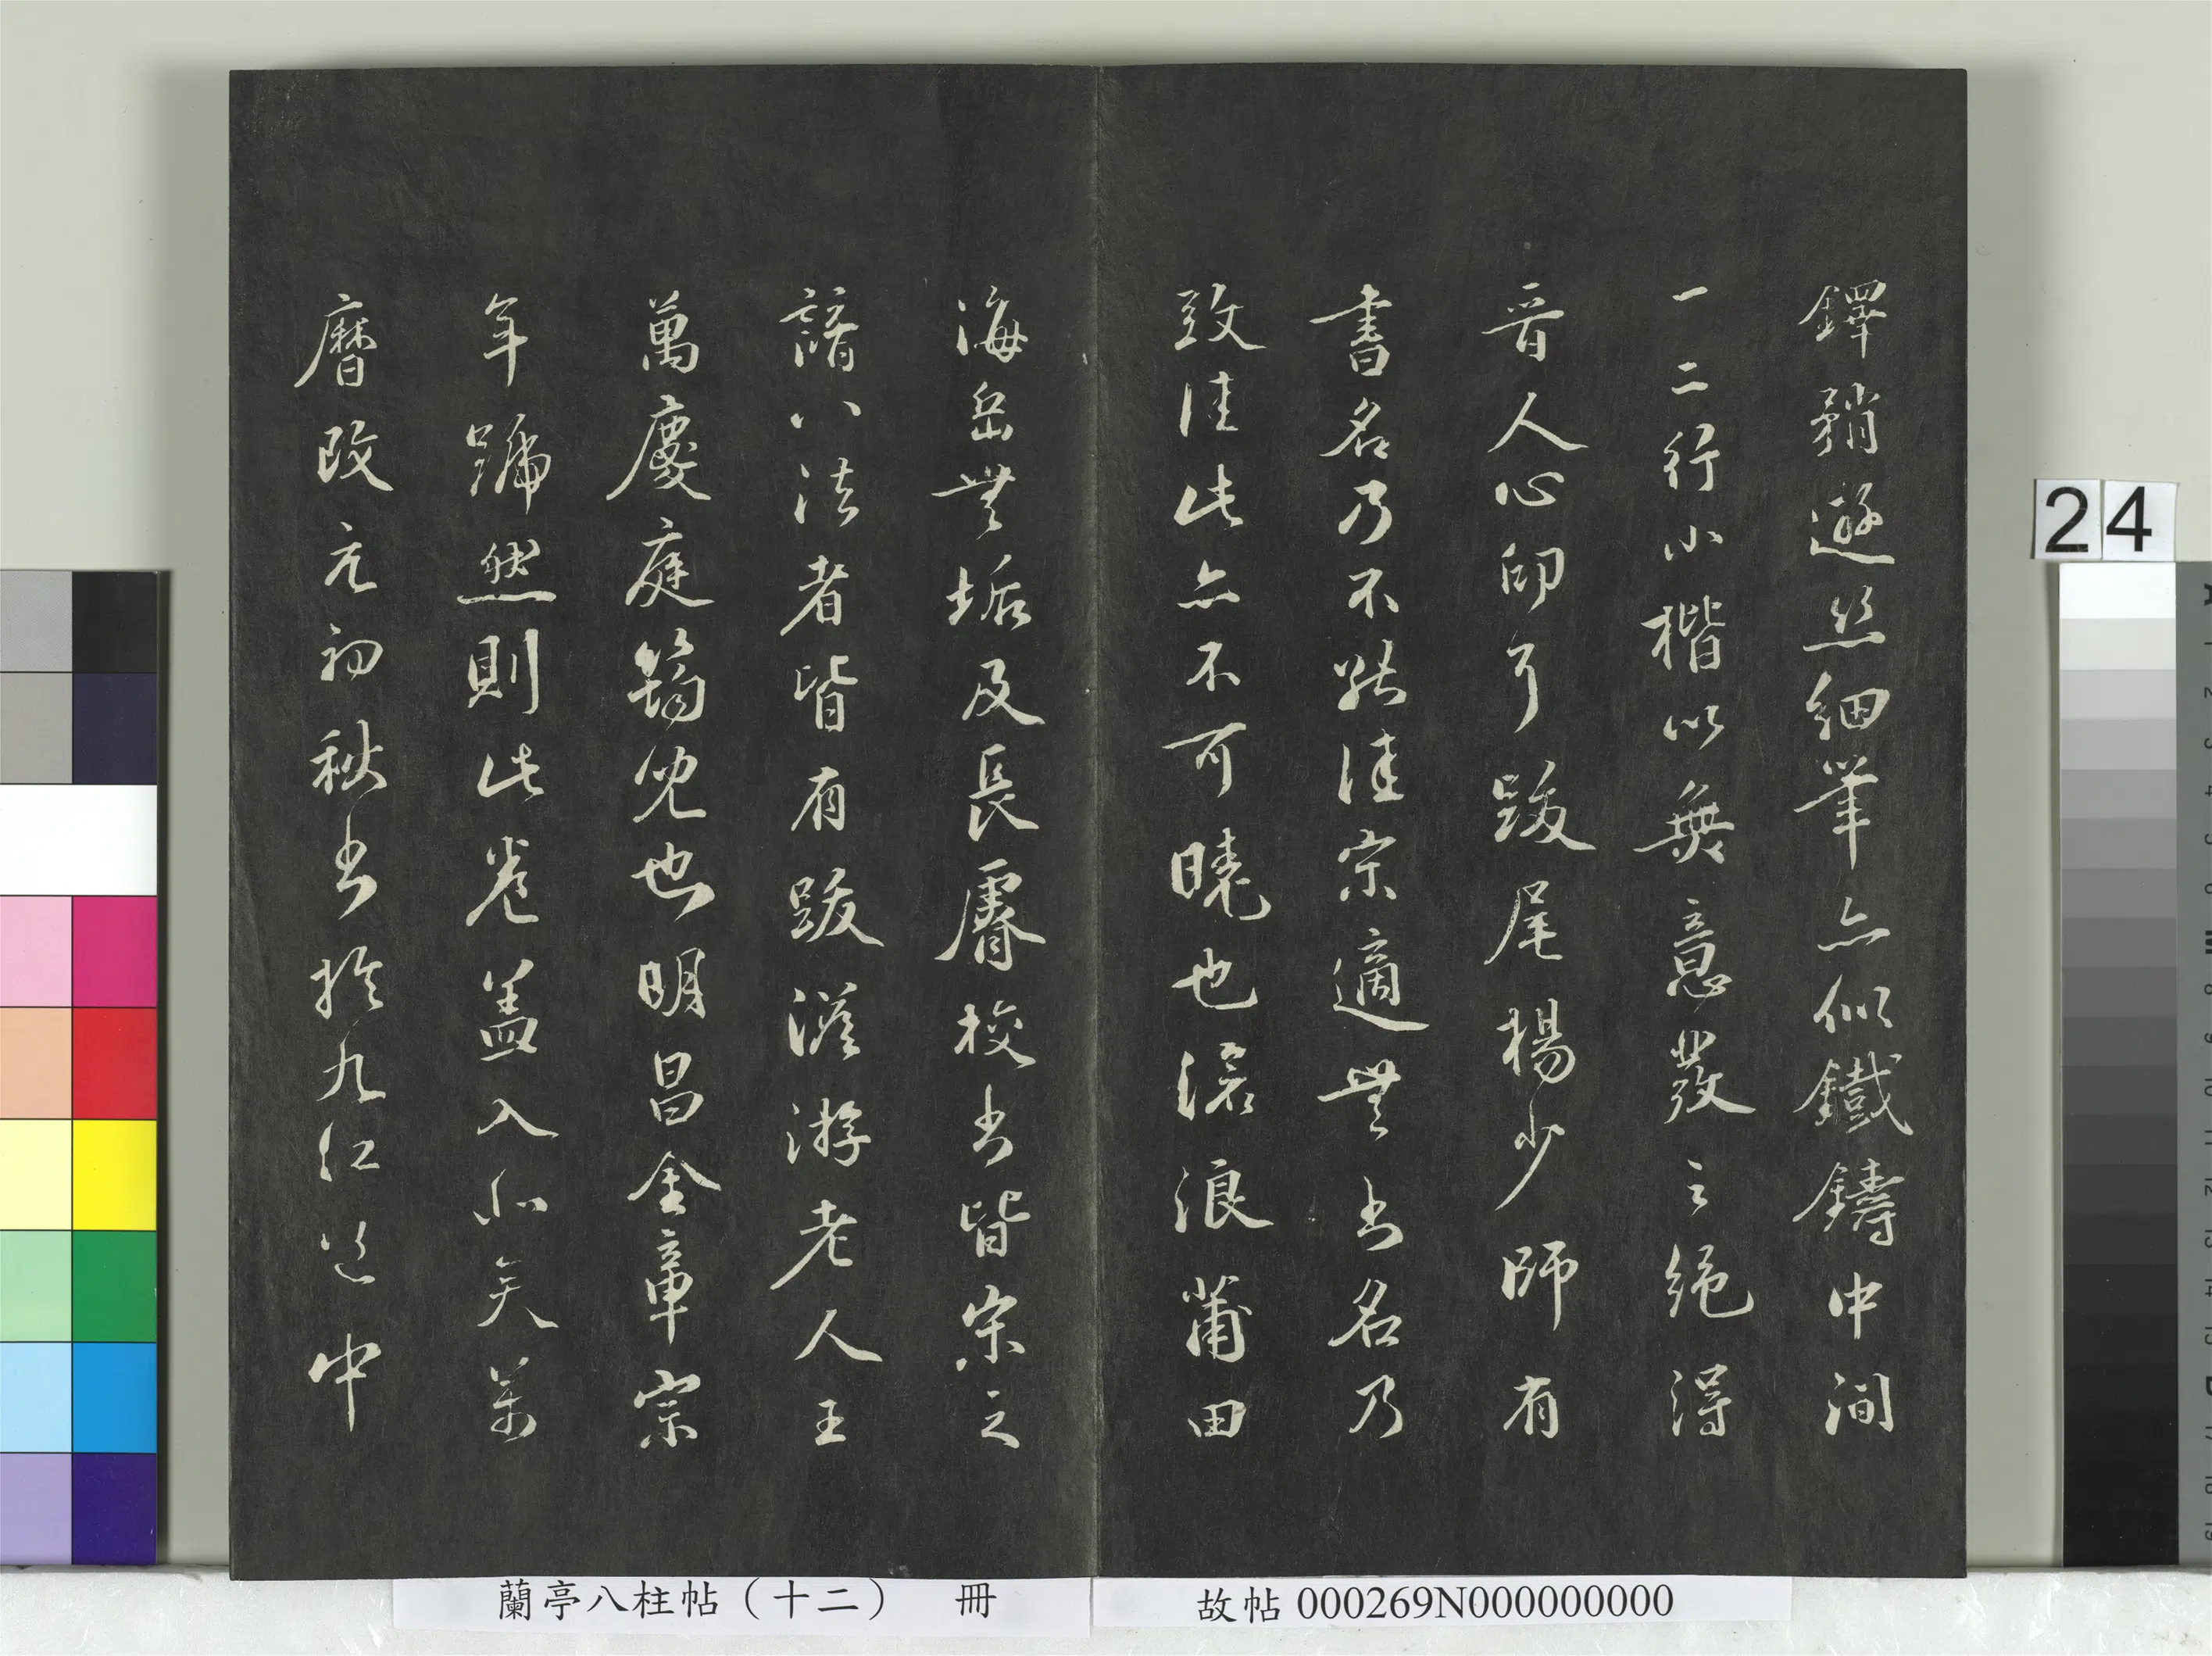 鐸矟遊絲細筆亦似鐵鑄中間
一二行小楷以無意發之絶得
晉人心印了跋尾楊少師有
書名乃不能佳宗適無書名乃
致佳此亦不可曉也滄浪莆田
海岳無垢及長睿校書皆宋之
諳八法者皆有跋澹游老人王
萬慶庭筠兒也明昌金章宗
年號然則此卷盖入北矣萬
曆改元初秋書於九江道中
蘭亭八柱帖（十二） 冊
故帖 000269N000000000
24